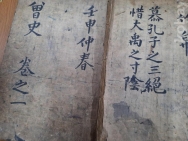 慕孔子之三絶
惜大禹之寸陰
壬申仲春
曾史
卷之一